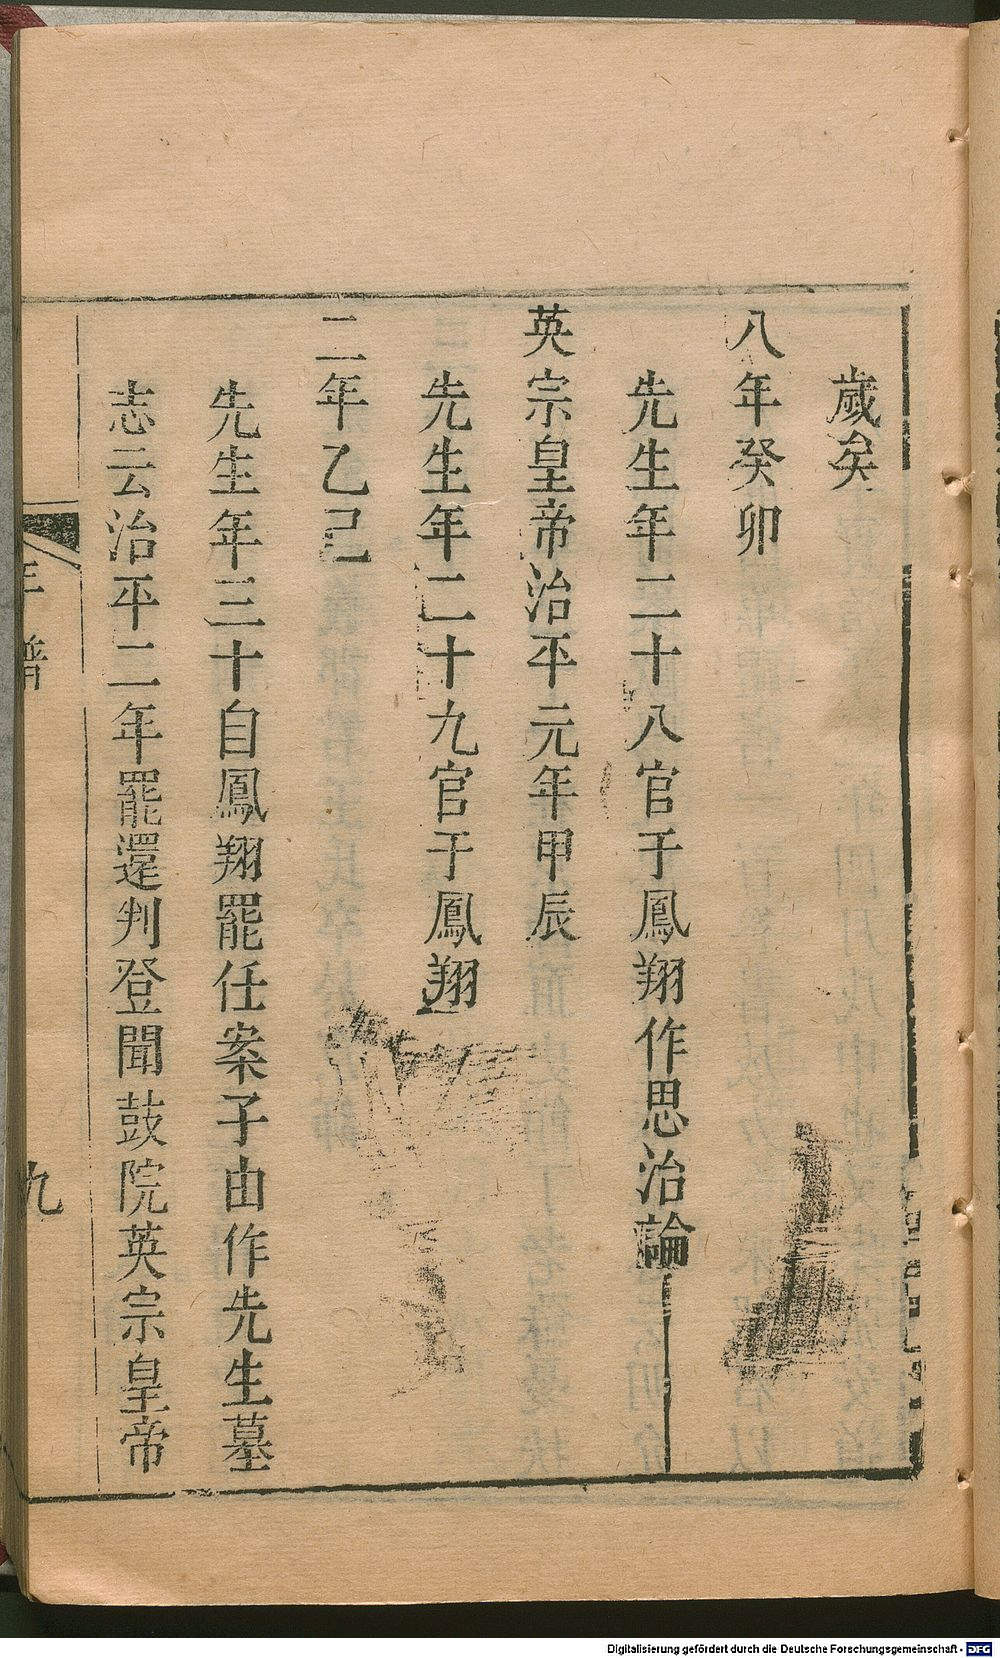 歲矣
八年癸卯
先生年二十八官于鳳翔作思治論
英宗皇帝治平元年甲辰
先生年二十九官于鳳翔
二年乙己
先生年三十自鳳翔罷任案子由作先生墓
志云治平二年罷還判登聞鼓院英宗皇帝
年譜
九
Digitalisierung gefördert durch die Deutsche Forschungsgemeinschaft - DFG